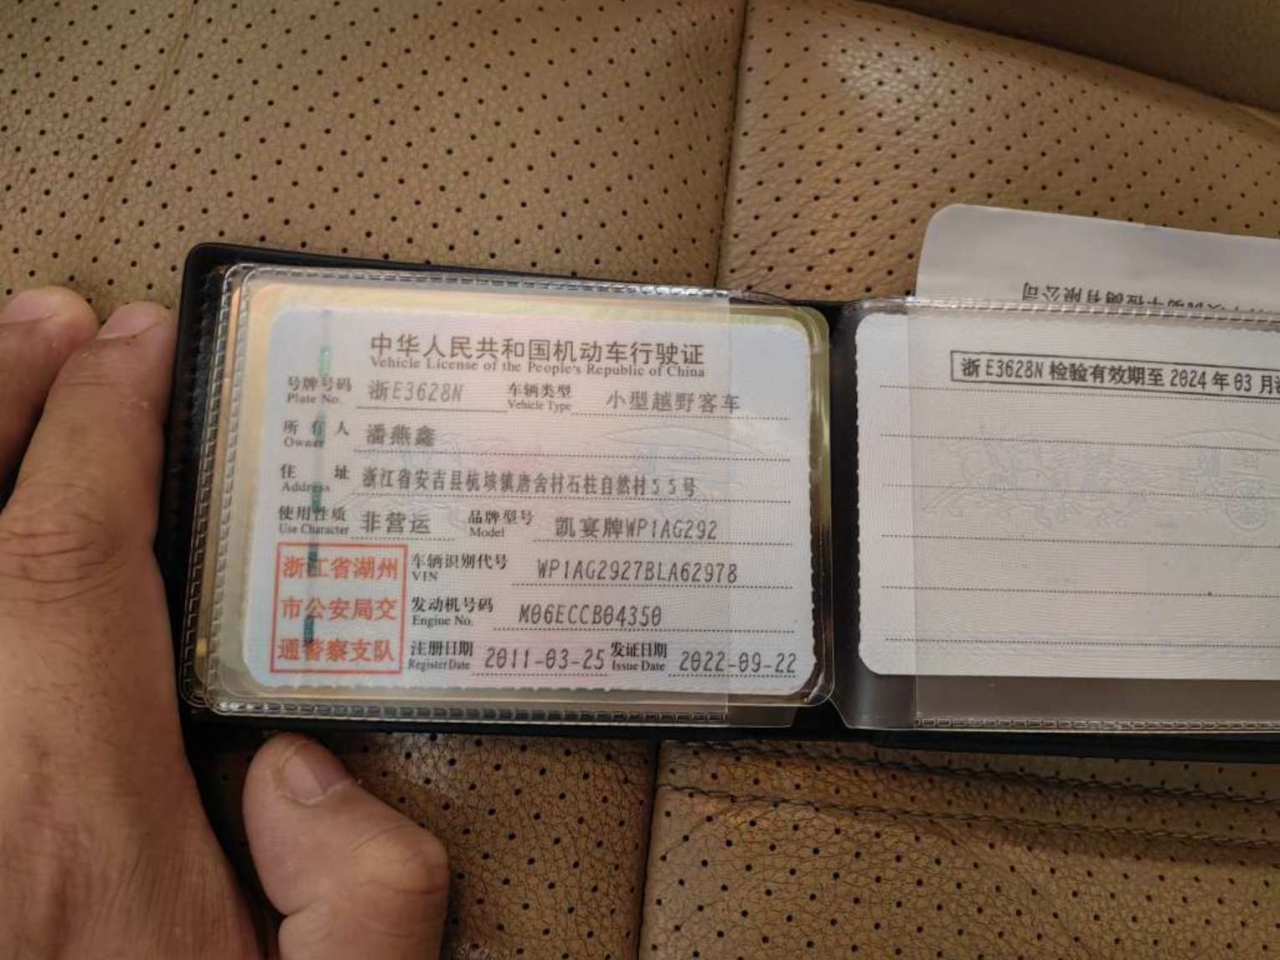 中华人民共和国机动车行驶证
Vehicle License of the People's Republic of China
号牌号码 浙E3628N 车辆类型 小型越野客车
Plate No. Vehicle Type
所有人 潘燕鑫
Owner
住址 浙江省安吉县杭垓镇唐舍村石柱自然村55号
Address
使用性质 非营运 品牌型号 凯宴牌WP1AG292
Use Character Model
浙江省湖州
市公安局交
通警察支队
车辆识别代号 WP1AG2927BLA62978
VIN
发动机号码 M06ECCB04350
Engine No.
注册日期 2011-03-25 发证日期 2022-09-22
Register Date Issue Date
动车检测有限公司
浙E3628N 检验有效期至 2024 年 03 月